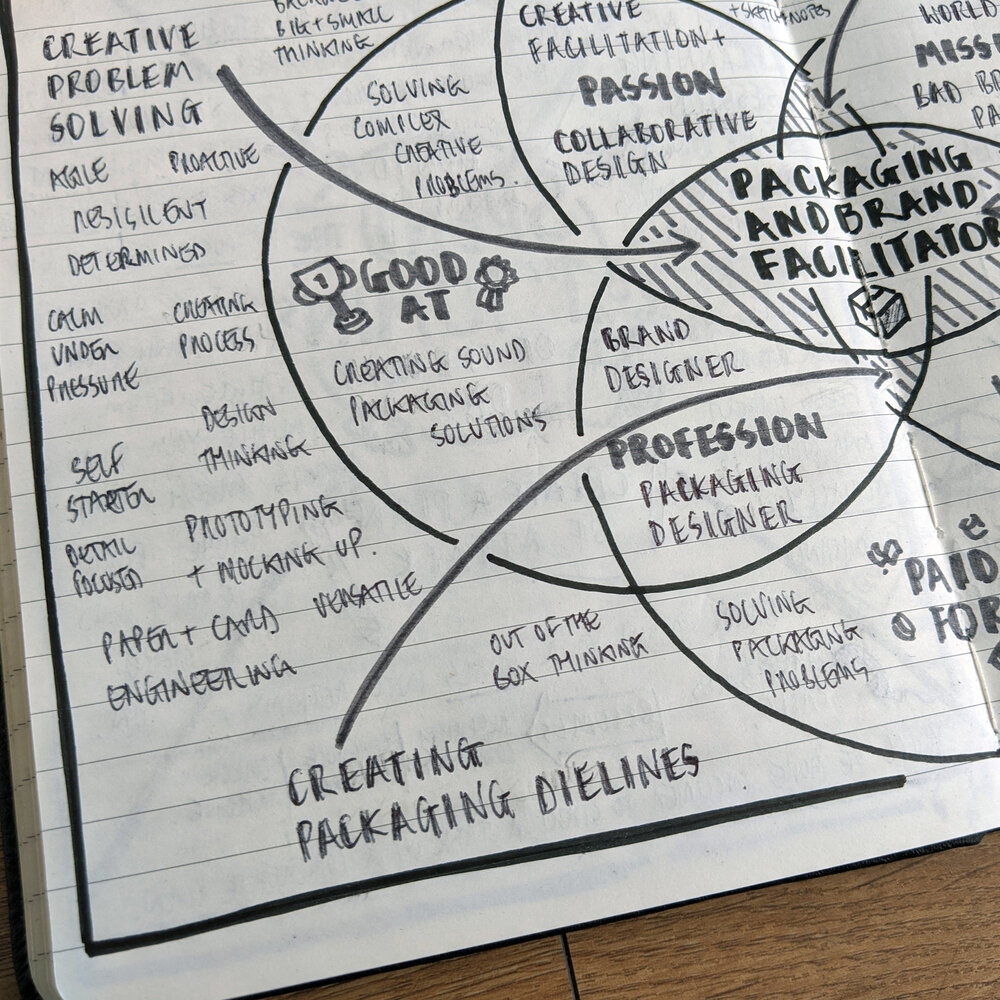 CREATIVE
PROBLEM
SOLVING
BIG+SMALL
THINKING
AGILE
PROACTIVE
RESILIENT
DETERMINED
CALM
UNDER
PRESSURE
CREATING
PROCESS
DESIGN
THINKING
SELF
STARTER
PROTOTYPING
+ MOCKING UP.
DETAIL
FOCUSED
VERSATILE
PAPER + CARD
ENGINEERING
SOLVING
COMPLEX
CREATIVE
PROBLEMS.
GOOD
AT
CREATING SOUND
PACKAGING
SOLUTIONS
CREATIVE
FACILITATION+
PASSION
COLLABORATIVE
DESIGN
+SKETCHNOTES
WORLD
BAD
PACKAGING
AND BRAND
FACILITATOR
BRAND
DESIGNER
PROFESSION
PACKAGING
DESIGNER
OUT OF THE
BOX THINKING
SOLVING
PACKAGING
PROBLEMS
PAID
FOR
CREATING
PACKAGING DIELINES